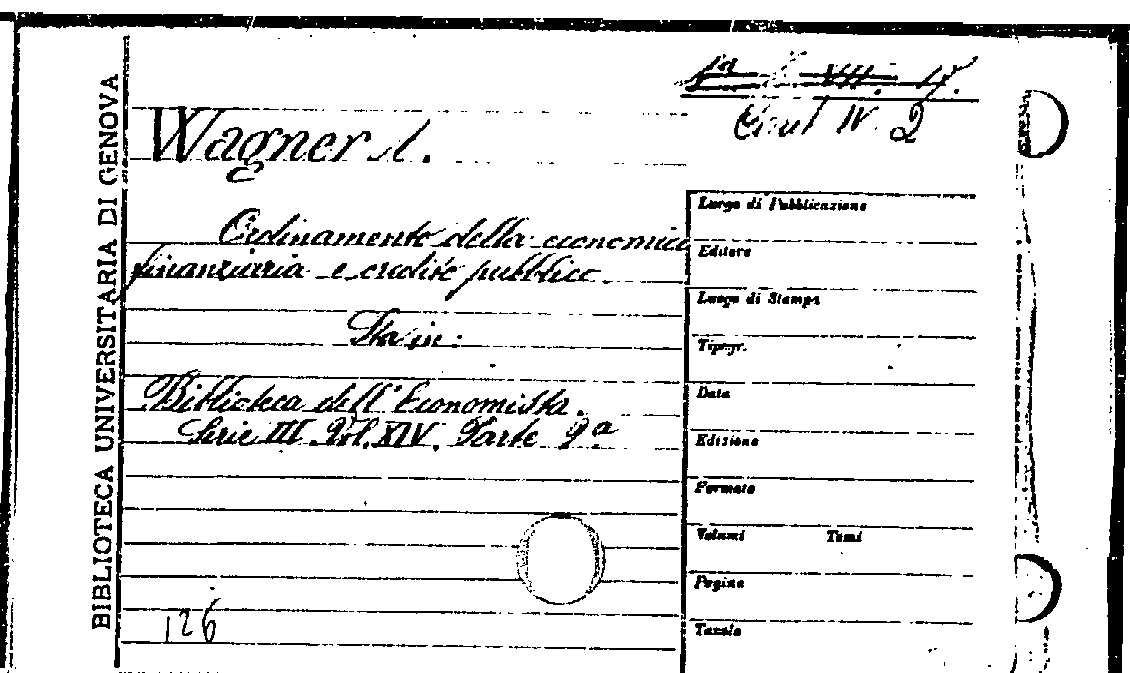 BIBLIOTECA UNIVERSITARIA DI GENOVA
VII. 17.
IV. 2
Wagner A.
Ordinamento della economica
finanziaria e credito pubblico.
Sta in:
Biblioteca dell'Economista.
Serie III Vol. XIV. Parte 2a
126
Luogo di Pubblicazione
Editore
Luogo di Stampa
Tipogr.
Data
Edizione
Formato
Volumi Tomi
Pagine
Tavole